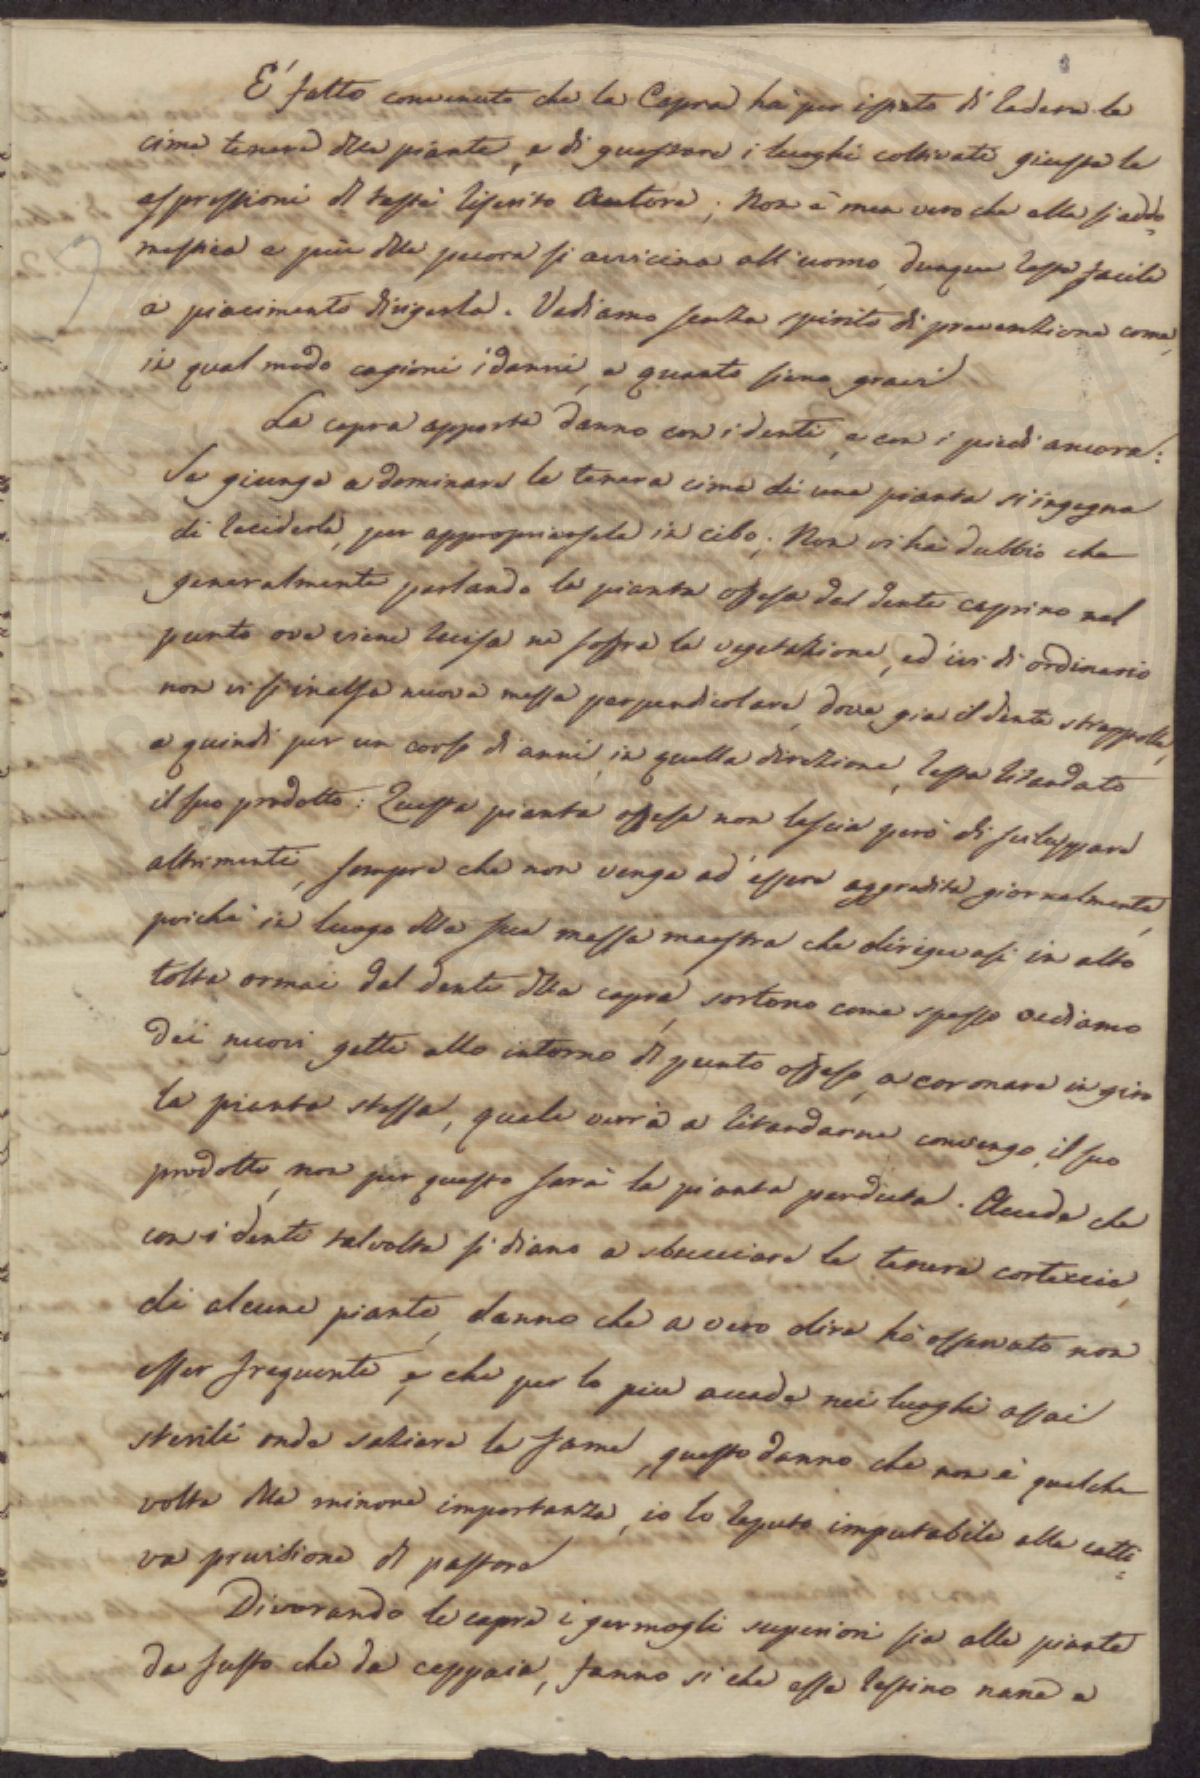 E' fatto convenuto che la Capra há per istinto di ledere le
cime tenere dlle piante, e di guastare i luoghi coltivati giusta le
espressioni dl testè riferito Autore; Non è men vero che ella si addo=
mestica e più dlla pecora si avvicina all'uomo, dunque resta facile
a piacimento dirigerla. Vediamo senza spirito di prevenzione come,
in qual modo cagioni i danni, e quanto sieno gravi
La capra apporta danno con i denti, e con i piedi ancora:
Se giunge a dominare le tenere cime di una pianta si ingegna
di reciderle, per appropriarsele in cibo; Non vi há dubbio che
generalmente parlando la pianta offesa dal dente caprino nel
punto ove viene recisa ne soffre la vegetazione, ed ivi di ordinario
non vi si inalsa nuova messa perpendicolare, dove già il dente strappolla,
e quindi per un corso di anni, in quella direzione, resta ritardato
il suo prodotto: Questa pianta offesa non lascia però di sviluppare
altrimenti, sempre che non venga ad essere aggredita giornalmente,
poichè in luogo dlla sua messa maestra che dirigevasi in alto
tolta ormai dal dente dlla capra, sortono come spesso vediamo
dei nuovi getti allo intorno dl punto offeso, a coronare in giro
la pianta stessa, quale verrà a ritardarne convengo, il suo
prodotto, non per questo sarà la pianta perduta. Accade che
con i denti talvolta si diano a sbucciare la tenera corteccia,
di alcune piante, danno che a vero dire hò osservato non
esser frequente, e che per lo più accade nei luoghi assai
sterili onde saziare la fame, questo danno che non è qualche
volta dlla minore importanza, io lo reputo imputabile alla catti=
va previsione dl pastore
Divorando le capre i germogli superiori sia alle piante
da fusto che da ceppaia, fanno si che esse restino nane e